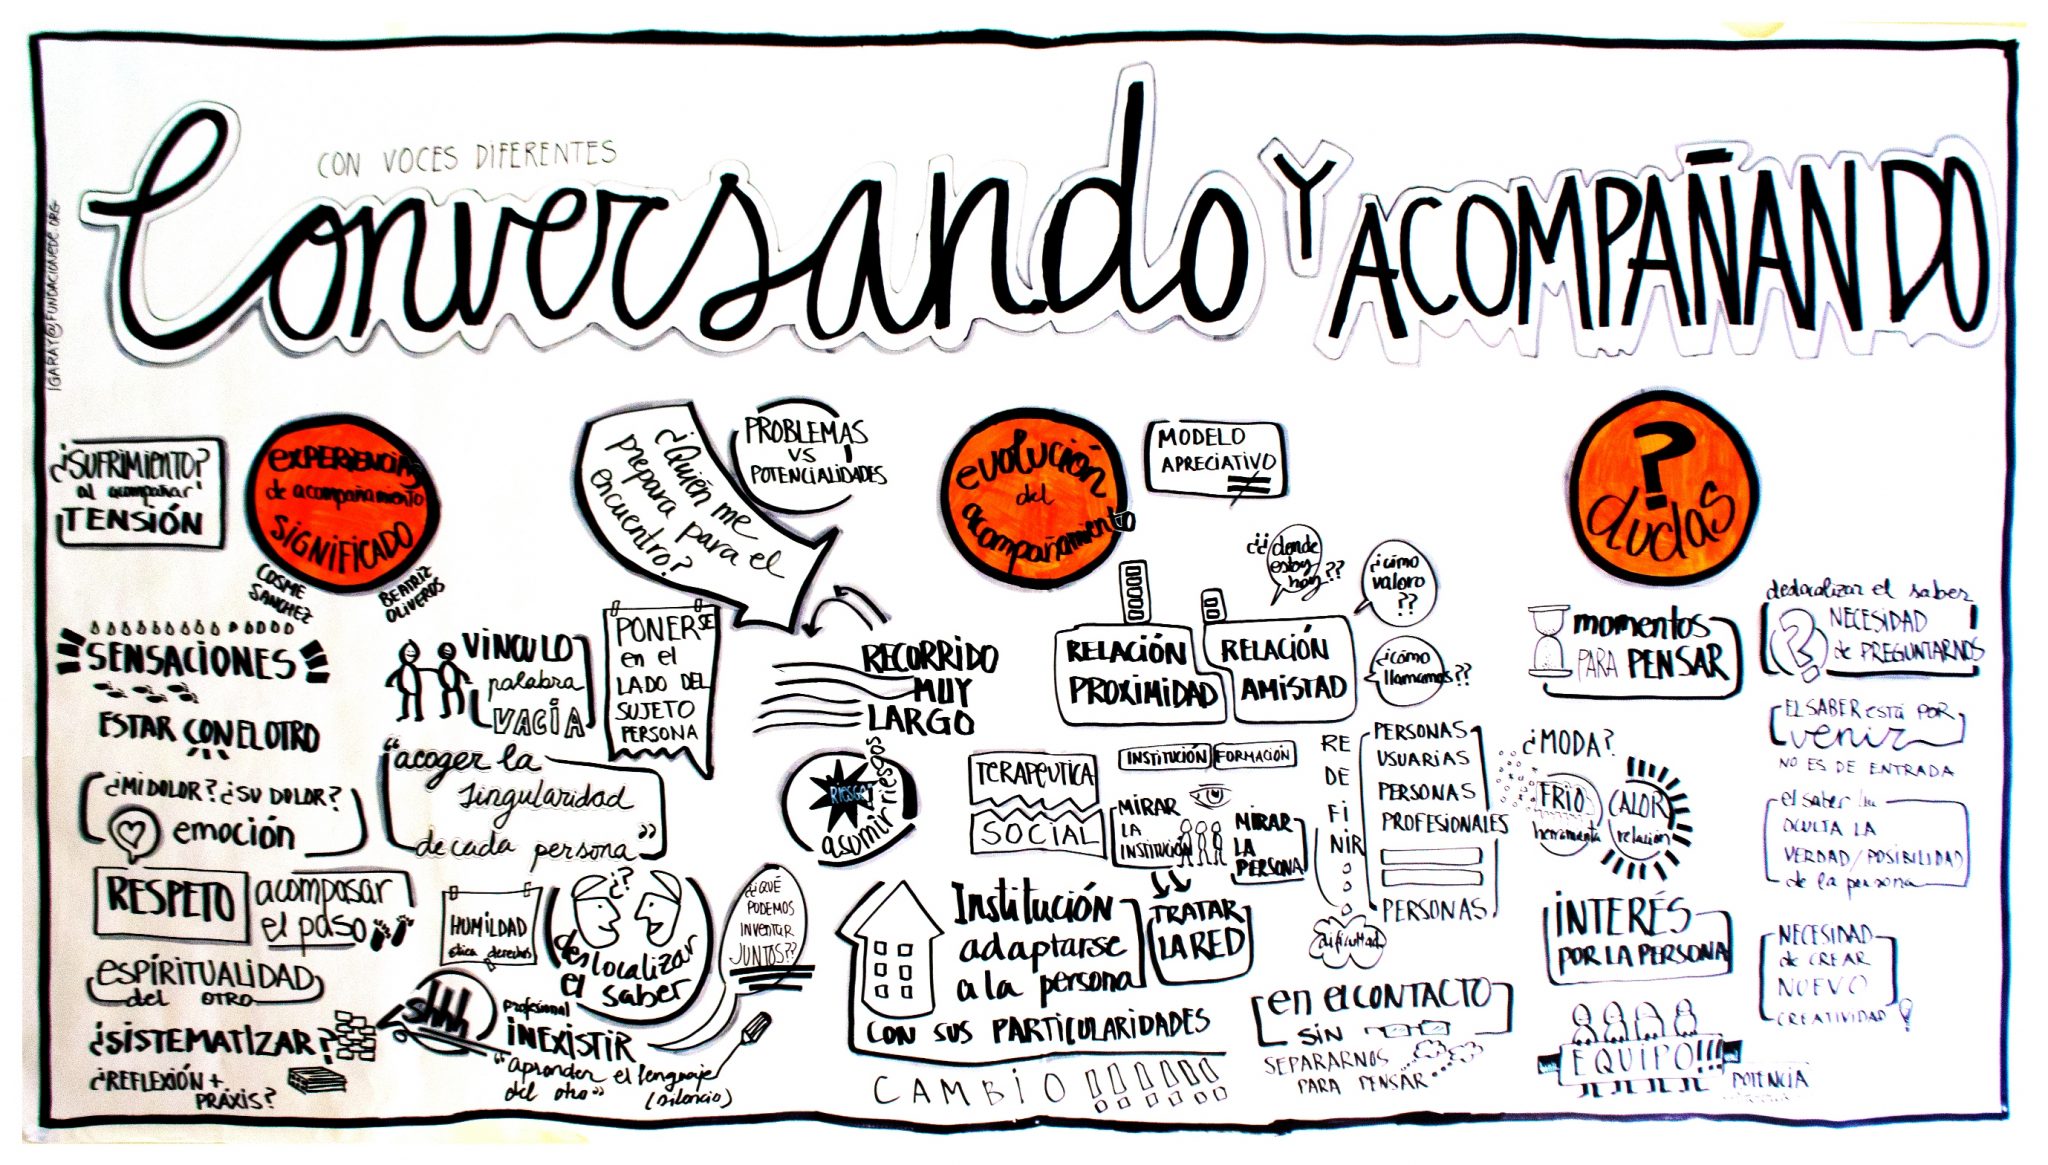 CON VOCES DIFERENTES
Conversando Y ACOMPAÑANDO
IGARAY@FUNDACIONEDE.ORG
¿SUFRIMIENTO?
al acompañar
TENSIÓN
EXPERIENCIAS
de acompañamiento
SIGNIFICADO
COSME
SANCHEZ
BEATRIZ
OLIVEROS
SENSACIONES
ESTAR CON EL OTRO
¿MI DOLOR? ¿SU DOLOR?
emoción
RESPETO
acompasar
el paso
ESPÍRITUALIDAD
del OTRO
¿SISTEMATIZAR?
¿REFLEXIÓN +
PRAXIS?
VINCULO
palabra
VACÍA
"acoger la
singularidad
de cada persona"
HUMILDAD
ética derechos
¿?
deslocalizar
el saber
shhh
profesional
INEXISTIR
"aprender el lenguaje
del otro" (silencio)
¿Quién me
prepara para el
encuentro?
PROBLEMAS
VS
POTENCIALIDADES
PONERSE
en el
LADO DEL
SUJETO
PERSONA
RECORRIDO
MUY
LARGO
RIESGO
asumir riesgos
¿¿QUÉ
PODEMOS
INVENTAR
JUNTOS??
evolución
del
acompañamiento
MODELO
APRECIATIVO
¿¿donde
estoy
hoy??
¿cómo
valoro
??
¿cómo
llamamos??
RELACIÓN
PROXIMIDAD
RELACIÓN
AMISTAD
TERAPEUTICA
SOCIAL
INSTITUCIÓN
FORMACIÓN
MIRAR
LA
INSTITUCIÓN
MIRAR
LA
PERSONA
TRATAR
LA RED
Institución
adaptarse
a la persona
CON SUS PARTICULARIDADES
CAMBIO !!!!!!!
RE
DE
FI
NIR
dificultad
PERSONAS
USUARIAS
PERSONAS
PROFESIONALES
PERSONAS
en el CONTACTO
SIN
SEPARARNOS
PARA PENSAR
?
dudas
momentos
PARA PENSAR
¿MODA?
FRIO
herramienta
CALOR
relación
INTERÉS
POR LA PERSONA
EQUIPO!!!
POTENCIA
deslocalizar el saber
?
NECESIDAD
de PREGUNTARNOS
EL SABER está POR
venir
NO ES DE ENTRADA
el saber
OCULTA LA
VERDAD/POSIBILIDAD
de la persona
NECESIDAD
de CREAR
NUEVO
CREATIVIDAD